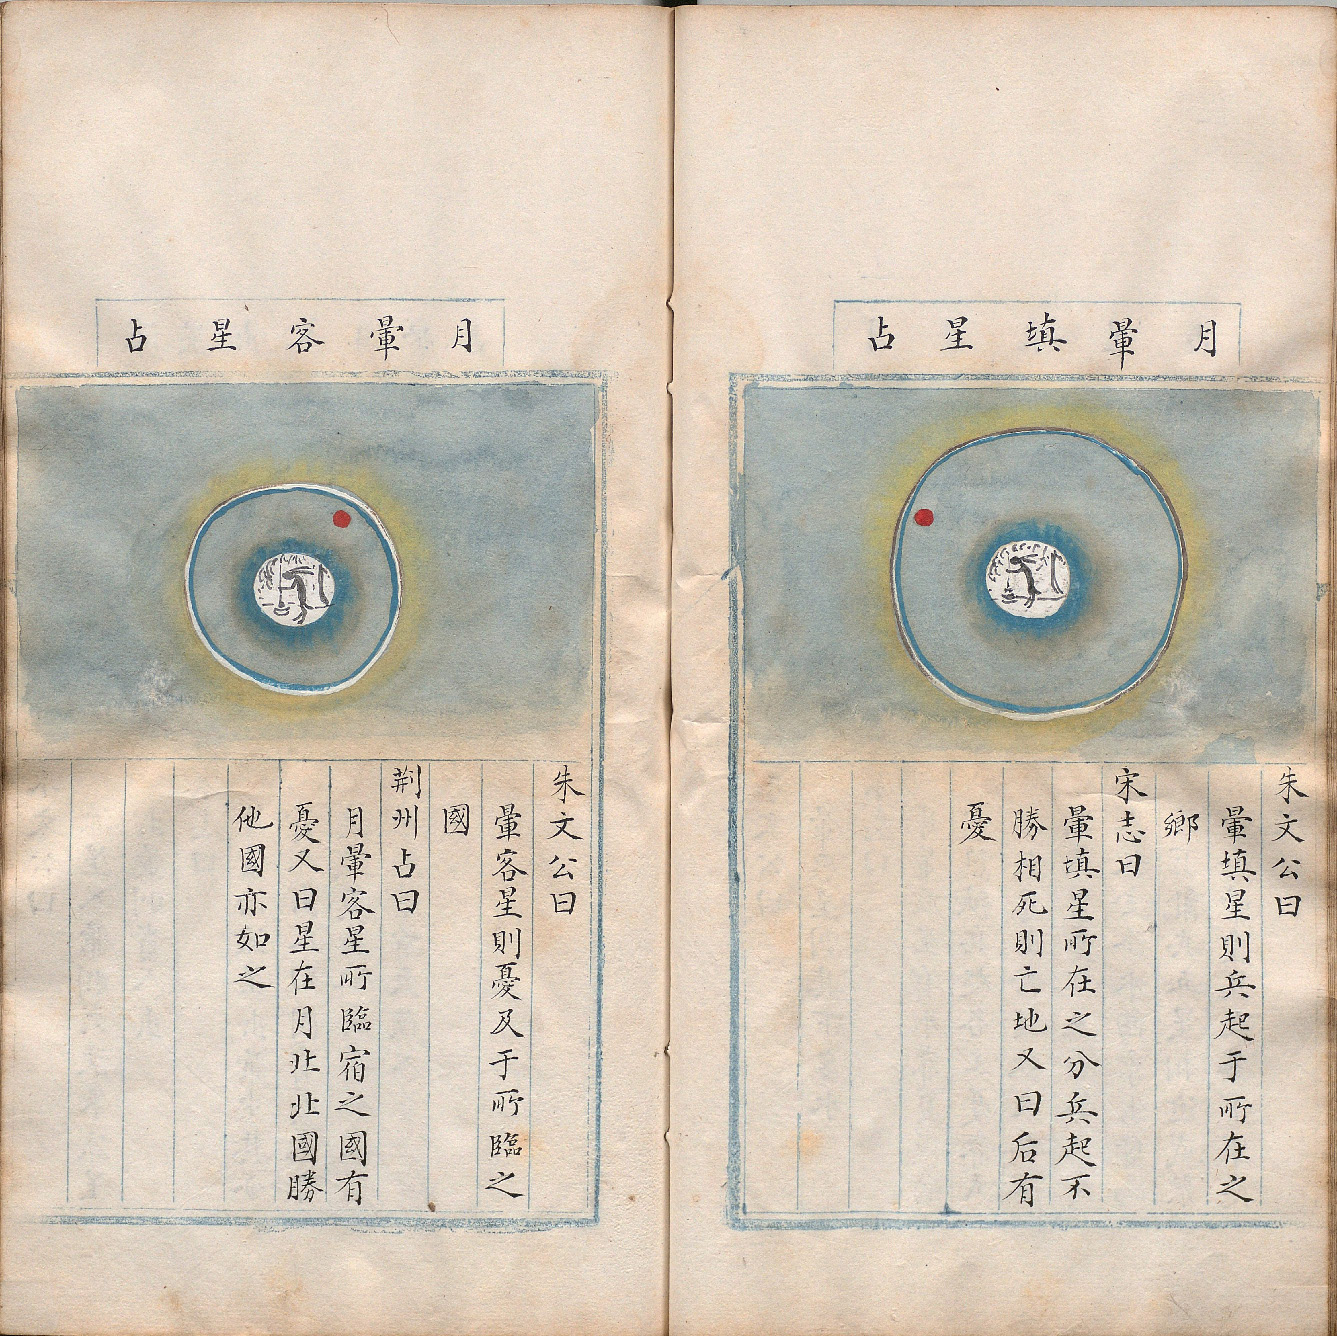 月暈填星占
朱文公曰
暈填星則兵起于所在之
鄉
宋志曰
暈填星所在之分兵起不
勝相死則亡地又曰后有
憂
月暈客星占
朱文公曰
暈客星則憂及于所臨之
國
荆州占曰
月暈客星所臨宿之國有
憂又曰星在月北北國勝
他國亦如之